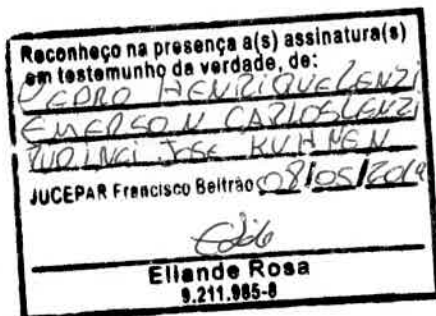 Reconheço na presença a(s) assinatura(s)
em testemunho da verdade, de:
PEDRO HENRIQUE LENZI
EMERSON CARLOS LENZI
RUDINEI JOSE KUHNEN
JUCEPAR Francisco Beltrão 08/05/2019
Eliande Rosa
9.211.985-8